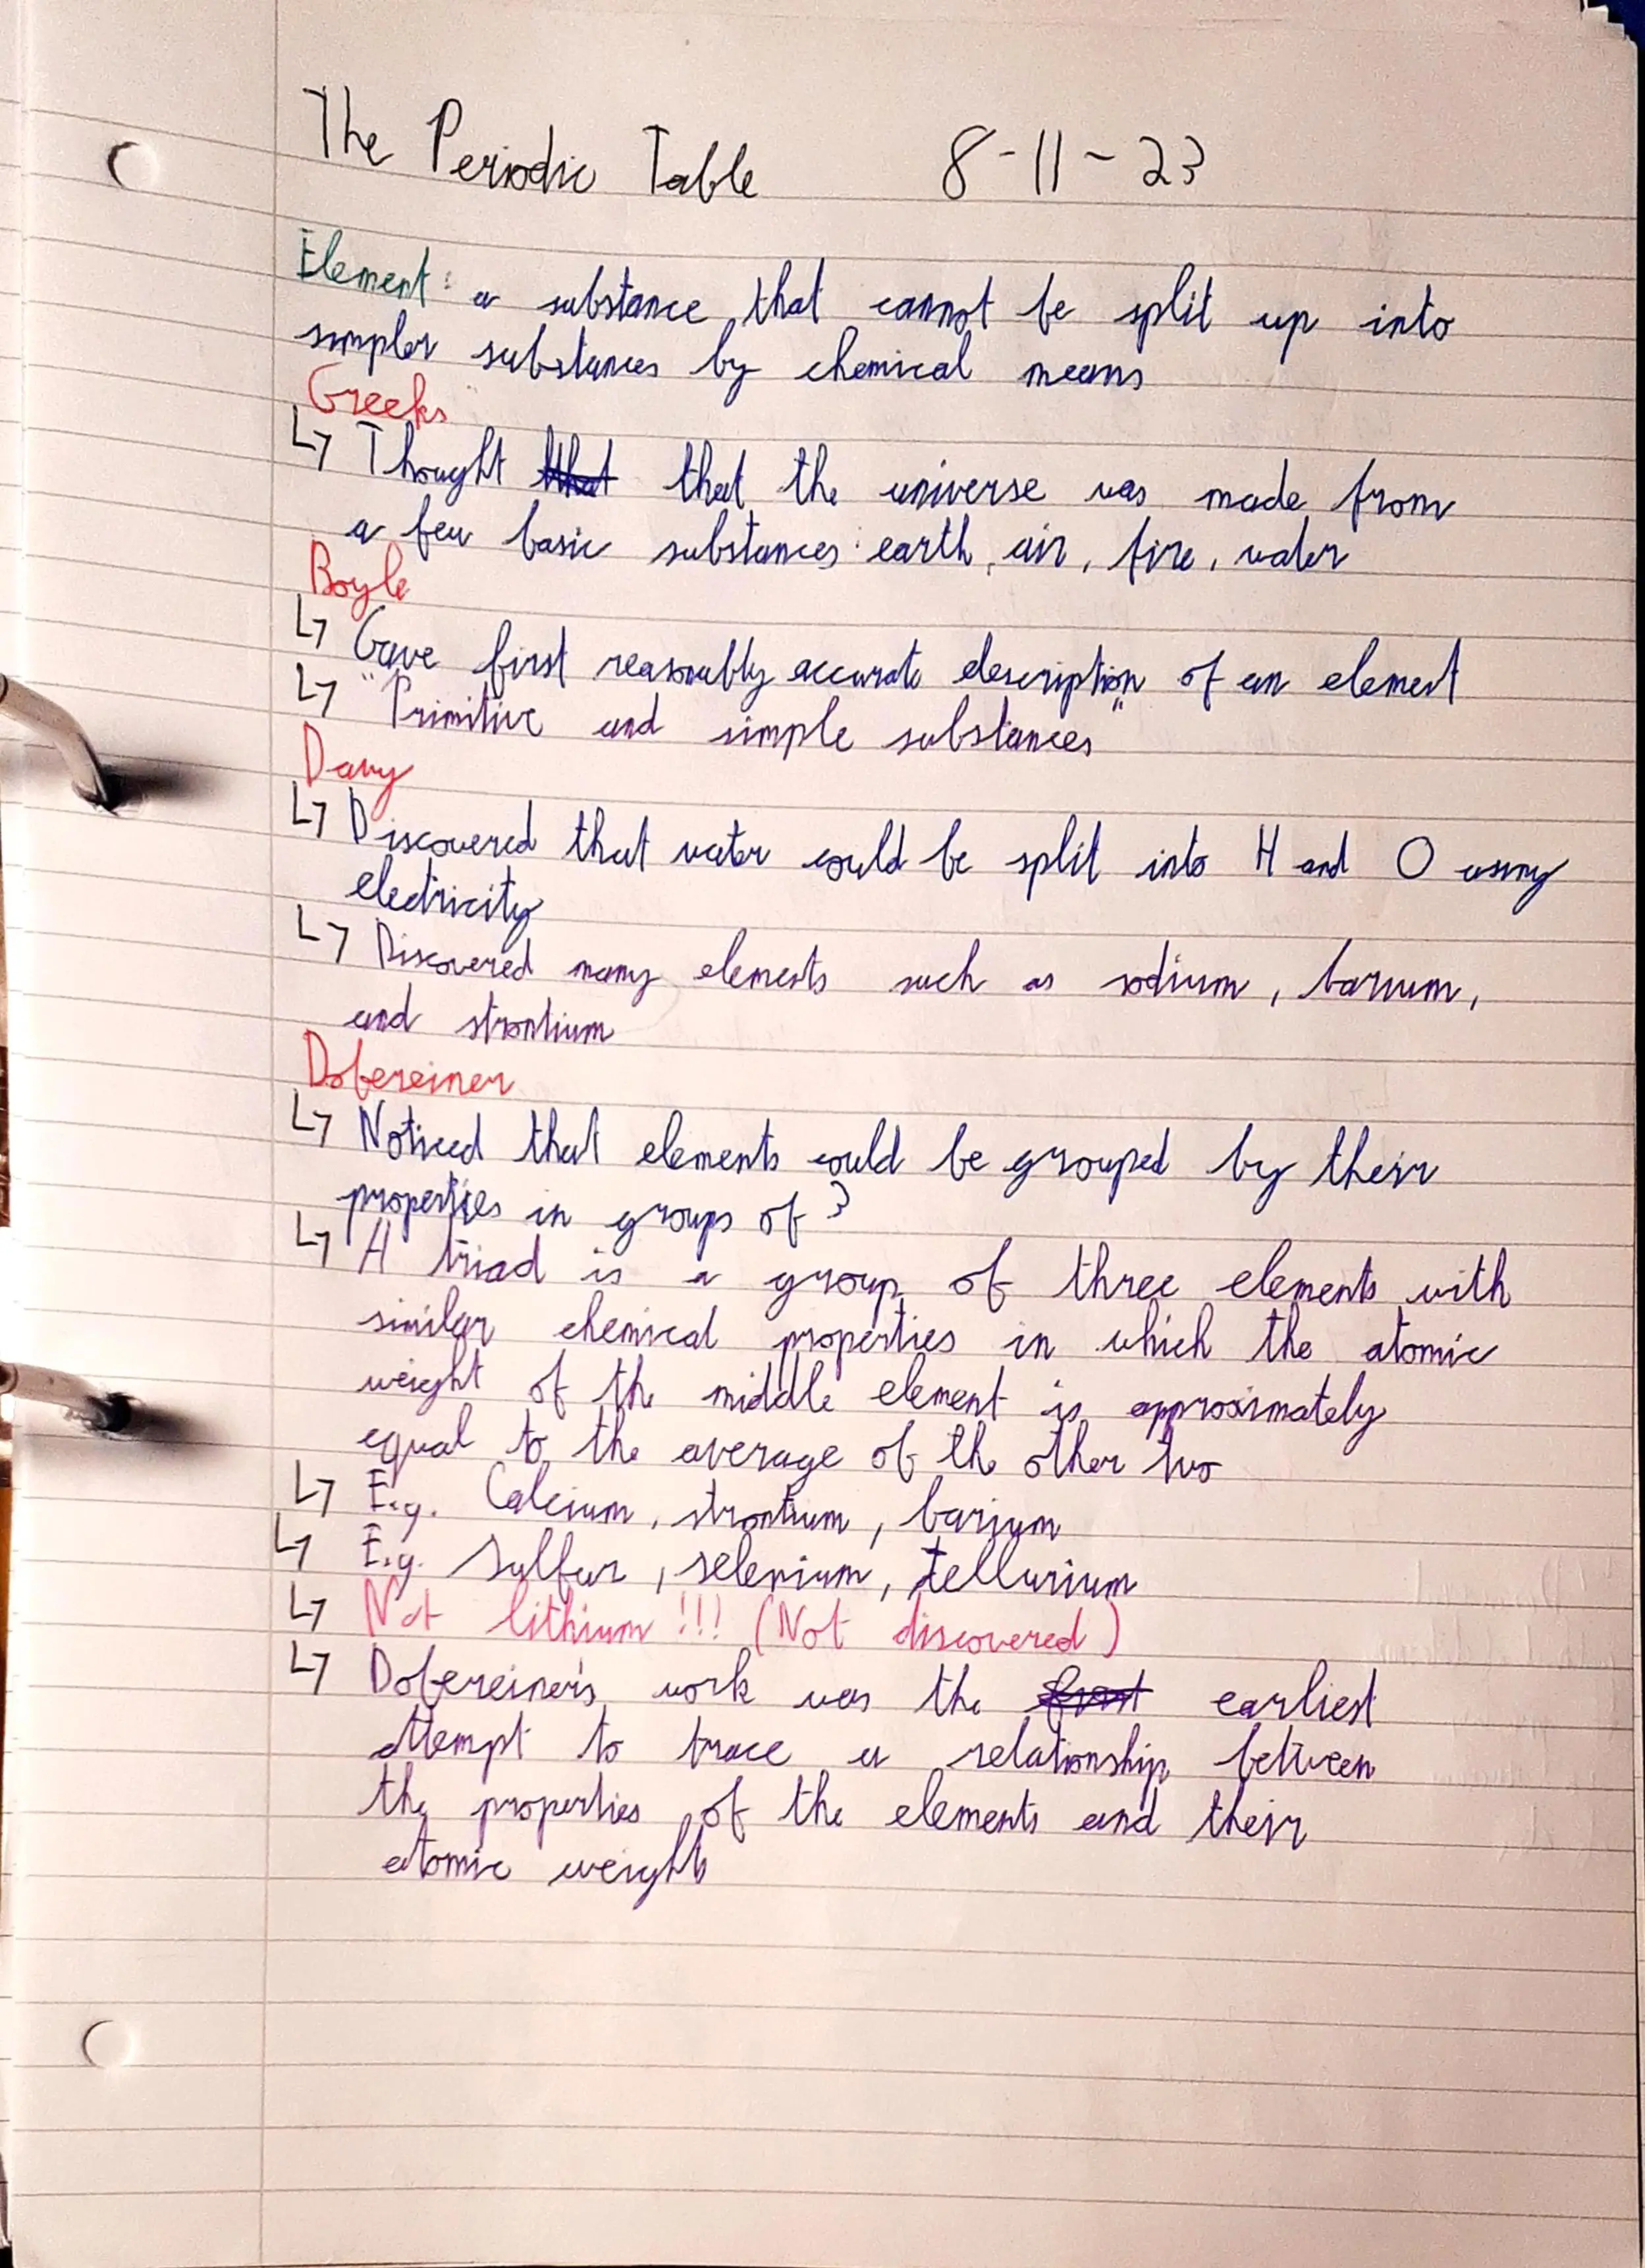 The Periodic Table 8-11-23
Element: a substance that cannot be split up into
simpler substances by chemical means
Greeks
↳ Thought that that the universe was made from
a few basic substances: earth, air, fire, water
Boyle
↳ Gave first reasonably accurate description of an element
↳ "Primitive and simple substances"
Davy
↳ Discovered that water could be split into H and O using
electricity
↳ Discovered many elements such as sodium, barium,
and strontium
Dobereiner
↳ Noticed that elements could be grouped by their
properties in groups of 3
↳ A triad is a group of three elements with
similar chemical properties in which the atomic
weight of the middle element is approximately
equal to the average of the other two
↳ E.g. Calcium, strontium, barium
↳ E.g. Sulfur, selenium, tellurium
↳ Not lithium!!! (Not discovered)
↳ Dobereiner's work was the first earliest
attempt to trace a relationship between
the properties of the elements and their
atomic weights